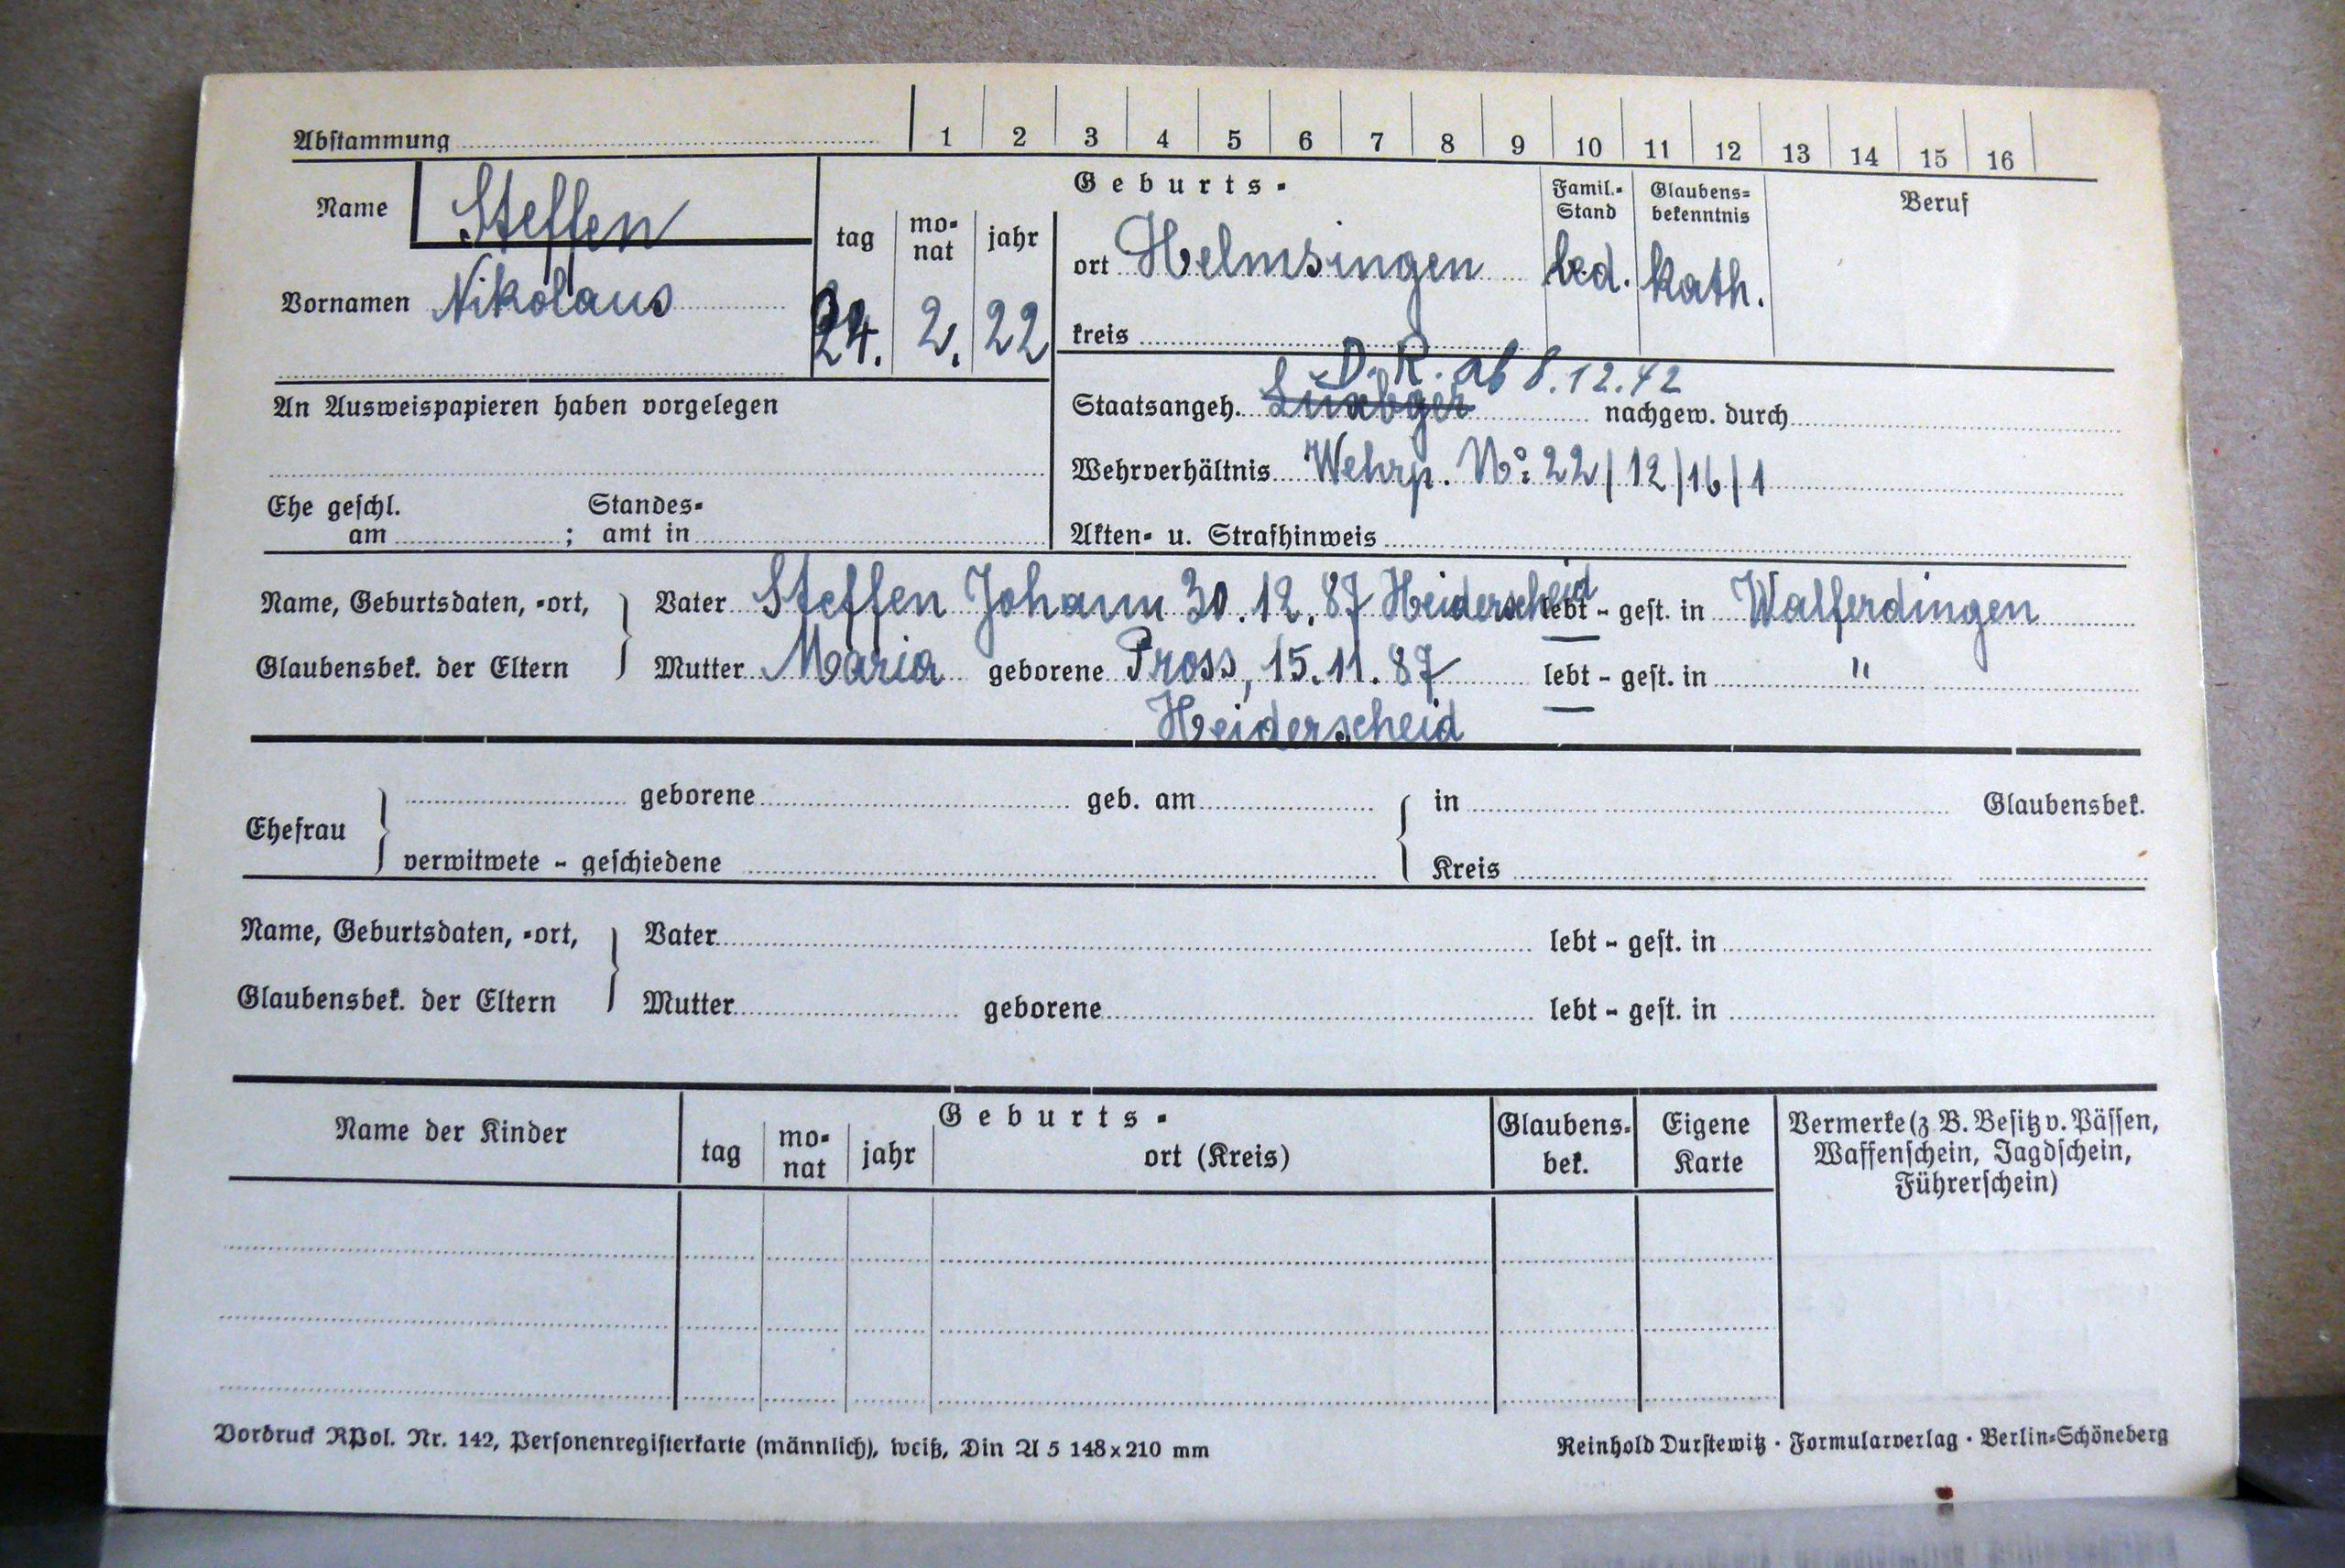 Abstammung 1 2 3 4 5 6 7 8 9 10 11 12 13 14 15 16
Name Steffen
Vornamen Nikolaus
Geburts-
tag mo-nat jahr
24. 2. 22
ort Helmsingen
kreis
Famil.-Stand
led.
Glaubens-bekenntnis
kath.
Beruf
An Ausweispapieren haben vorgelegen
D. R. ab 8.12.42
Staatsangeh. Luxbger nachgew. durch
Wehrverhältnis Wehrp. No: 22/12/16/1
Ehe geschl. am ; Standes-amt in
Akten- u. Strafhinweis
Name, Geburtsdaten, -ort,
Glaubensbek. der Eltern
Vater Steffen Johann 30.12.87 Heiderscheid lebt - gest. in Walferdingen
Mutter Maria geborene Pross, 15.11.87 lebt - gest. in "
Heiderscheid
Ehefrau
geborene geb. am in Glaubensbek.
verwitwete - geschiedene Kreis
Name, Geburtsdaten, -ort,
Glaubensbek. der Eltern
Vater lebt - gest. in
Mutter geborene lebt - gest. in
Name der Kinder
Geburts-
tag mo-nat jahr ort (Kreis)
Glaubens-bek.
Eigene Karte
Vermerke (z. B. Besitz v. Pässen,
Waffenschein, Jagdschein,
Führerschein)
Vordruck RPol. Nr. 142, Personenregisterkarte (männlich), weiß, Din A 5 148x210 mm
Reinhold Durstewitz · Formularverlag · Berlin-Schöneberg